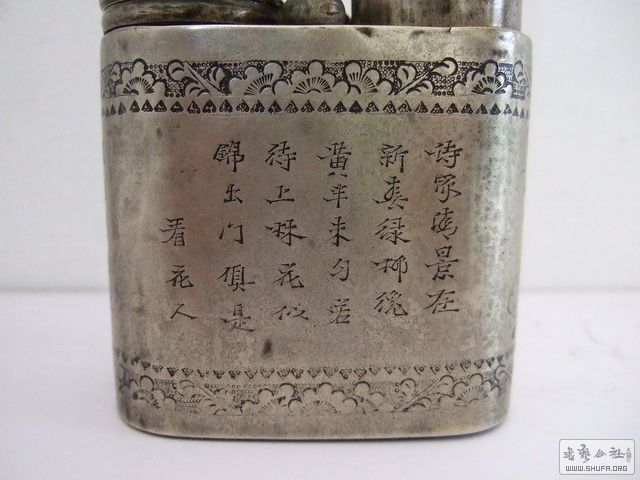 詩家清景在
新春绿柳纔
黄半未匀若
待上林花似
錦出门俱是
看花人
書藝公社
WWW.SHUFA.ORG